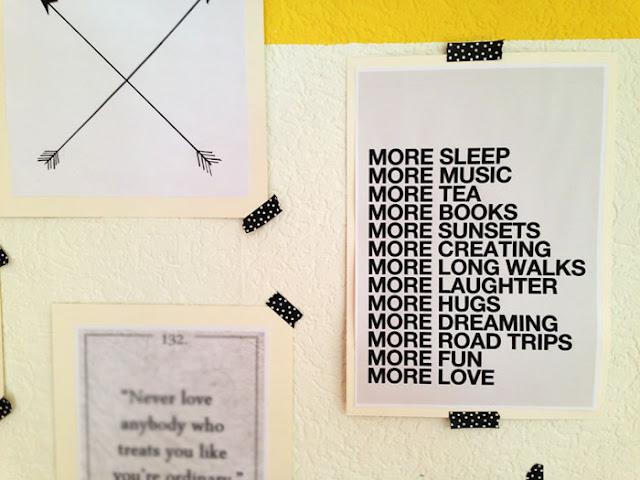 MORE SLEEP
MORE MUSIC
MORE TEA
MORE BOOKS
MORE SUNSETS
MORE CREATING
MORE LONG WALKS
MORE LAUGHTER
MORE HUGS
MORE DREAMING
MORE ROAD TRIPS
MORE FUN
MORE LOVE
132.
"Never love
anybody who
treats you like
you're ordinary."